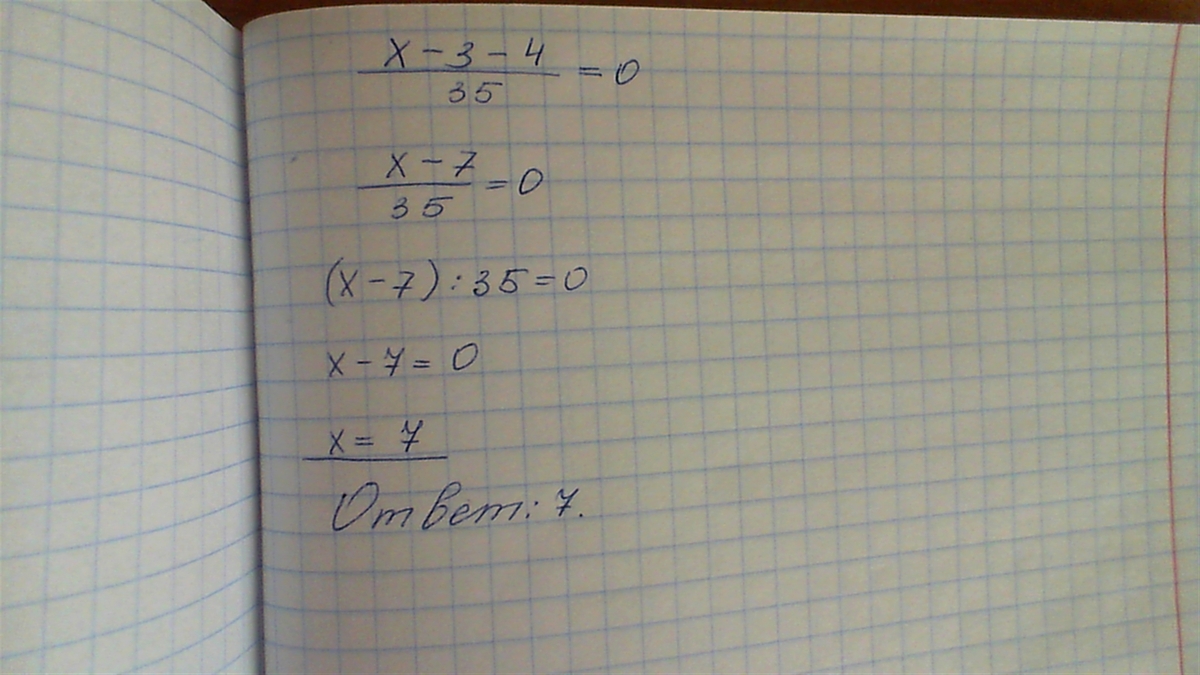 x - 3 - 4
35
= 0
x - 7
35
= 0
(x - 7) : 35 = 0
x - 7 = 0
x = 7
Ответ: 7.